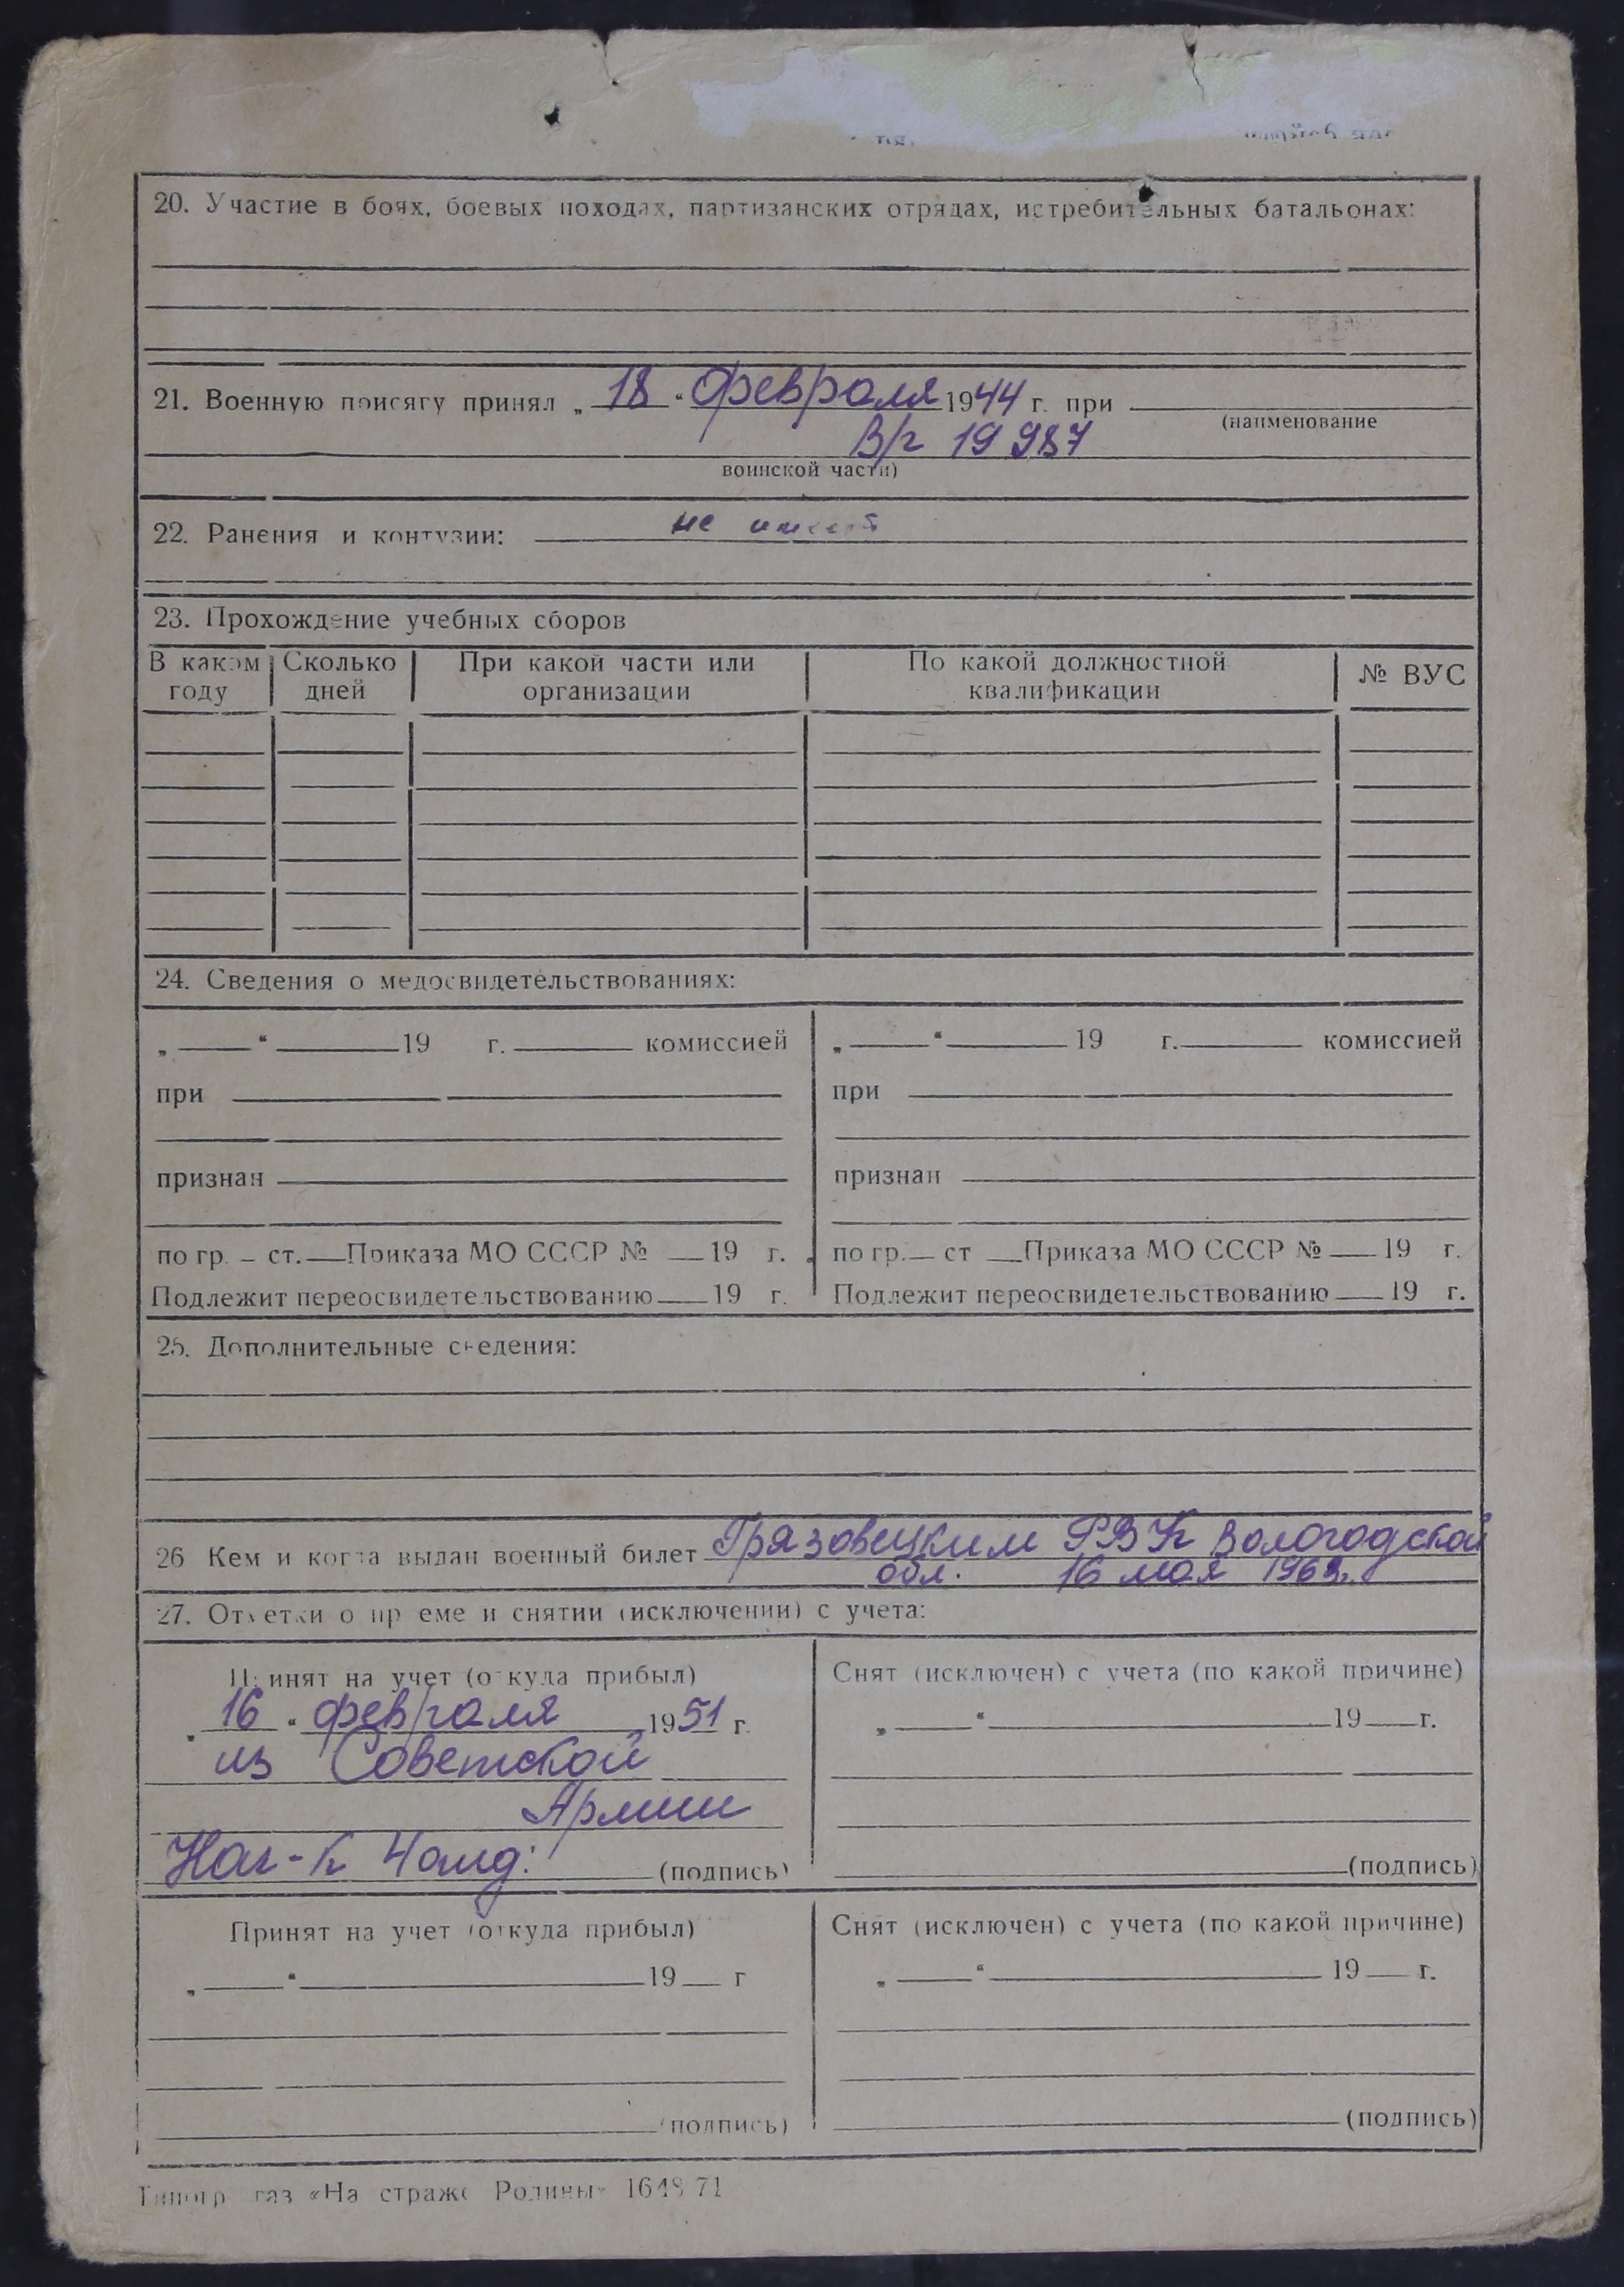 20. Участие в боях, боевых походах, партизанских отрядах, истребительных батальонах:
21. Военную присягу принял „ 18 “ февраля 1944 г. при
(наименование
В/г 19987
воинской части)
22. Ранения и контузии: не имеет
23. Прохождение учебных сборов
В каком году Сколько дней При какой части или организации По какой должностной квалификации № ВУС
24. Сведения о медосвидетельствованиях:
„ “ 19 г. комиссией „ “ 19 г. комиссией
при при
признан признан
по гр. – ст. Приказа МО СССР № 19 г. по гр. ст Приказа МО СССР № 19 г.
Подлежит переосвидетельствованию 19 г. Подлежит переосвидетельствованию 19 г.
25. Дополнительные сведения:
26 Кем и когда выдан военный билет Грязовецким РВК Вологодской
обл. 16 мая
27. Отметки о приеме и снятии (исключении) с учета:
Принят на учет (откуда прибыл) Снят (исключен) с учета (по какой причине)
„ 16 “ февраля 1951 г. „ “ 19 г.
из Советской
Армии
(подпись) (подпись)
Принят на учет (откуда прибыл) Снят (исключен) с учета (по какой причине)
„ “ 19 г „ “ 19 г.
(подпись) (подпись)
Типогр газ «На страже Родины»